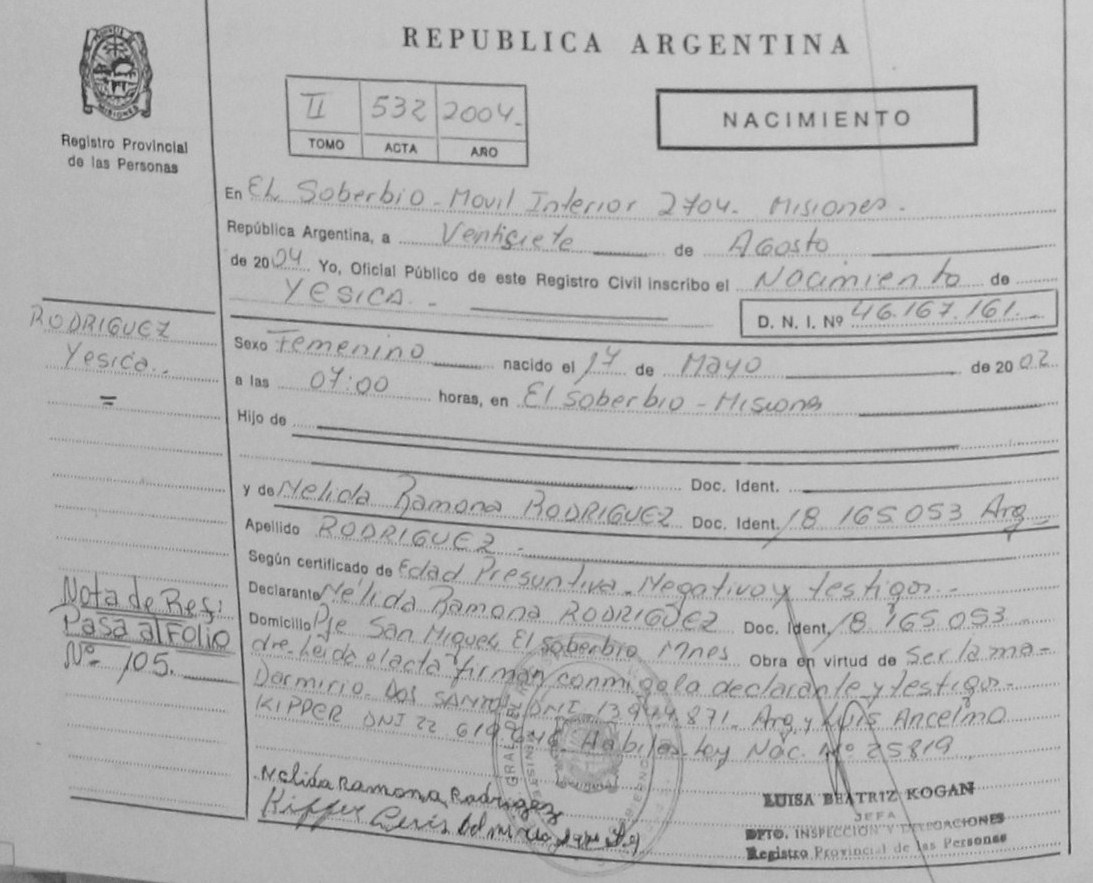 REPUBLICA ARGENTINA
MISIONES
Registro Provincial
de las Personas
II 532 2004-
TOMO ACTA AÑO
NACIMIENTO
En EL Soberbio - Movil Interior 2704- Misiones -
República Argentina, a Ventisiete de Agosto
de 2004 Yo, Oficial Público de este Registro Civil inscribo el Nacimiento de
YESICA - -
D. N. I. Nº 46.167.161.-
RODRIGUEZ
Yesica..
=
Sexo Femenino nacido el 17 de Mayo de 2002
a las 07:00 horas, en El Soberbio - Misiones
Hijo de
Doc. Ident.
y de Nelida Ramona RODRIGUEZ Doc. Ident. 18 165 053 Arg
Apellido RODRIGUEZ -
Según certificado de Edad Presuntiva - Negativo y testigos -
Declarante Nélida Ramona RODRIGUEZ Doc. Ident, 18 165 053
Domicilio Pje San Miguel El Soberbio Mnes Obra en virtud de Ser la ma-
dre. Leída el acta firman conmigo la declarante y testigos -
DOS SANTOS DNI 13.944.871- Arg y Luis Ancelmo
KIPPER DNI 22 619 Habiles - Ley Nac. Nº 25819
Nota de Ref:
Pasa al Folio
Nº 105.
Nelida Ramona Rodriguez
Kipper Luis
LUISA BEATRIZ KOGAN
JEFA
DPTO. INSPECCION Y
Registro Provincial de las Personas